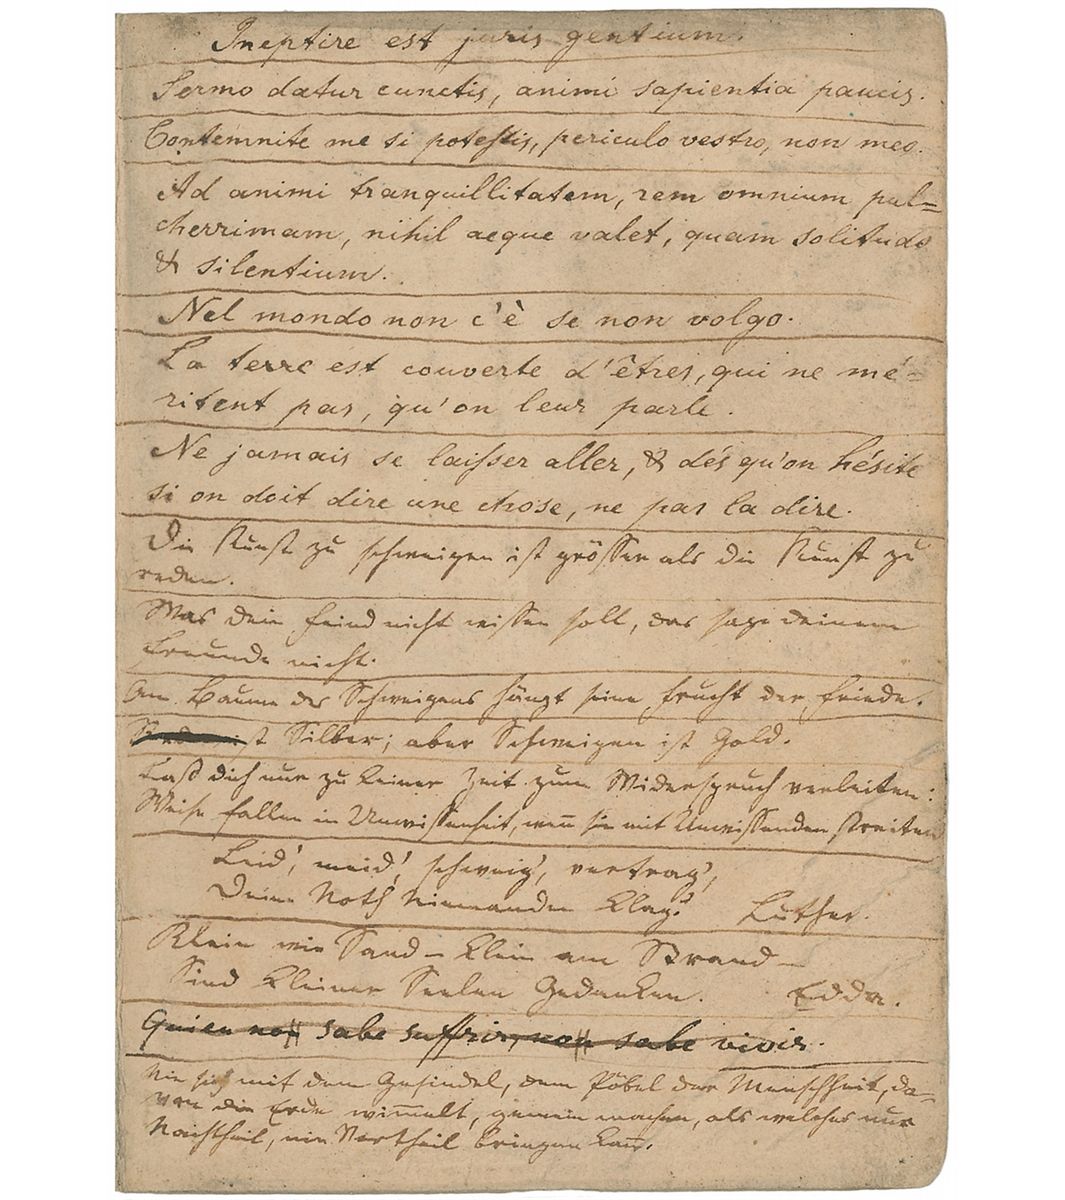 Ineptire est juris gentium.
Sermo datur cunctis, animi sapientia paucis.
Contemnite me si potestis, periculo vestro, non meo.
Ad animi tranquillitatem, rem omnium pul=
cherrimam, nihil aeque valet, quam solitudo
& silentium.
Nel mondo non c'è se non volgo.
La terre est couverte d'êtres, qui ne mé-
ritent pas, qu'on leur parle.
Ne jamais se laisser aller, & dés qu'on hésite
si on doit dire une chose, ne pas la dire.
Die Kunst zu schweigen ist grösser als die Kunst zu
reden.
Was dein Feind nicht wissen soll, das sage deinem
Freunde nicht.
Am Baume des Schweigens hängt seine Frucht der Friede.
Reden ist Silber; aber Schweigen ist Gold.
Laß dich nur zu keiner Zeit zum Widerspruch verleiten:
Weise fallen in Unwissenheit, wenn sie mit Unwissenden streiten
Leid', meid', schweig', vertrag',
Deine Noth Niemanden klag'. Luther.
Klein wie Sand – klein am Strand –
Sind kleiner Seelen Gedanken. Edda.
Quien non sabe suffrir, non sabe vivir.
Nie sich mit dem Gesindel, dem Pöbel der Menschheit, da-
von die Erde wim̅elt, gemein machen, als welches nur
Nachtheil, nie Vortheil bringen kan̅.